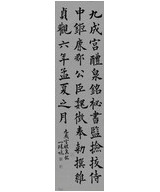 九成宮醴泉銘祕書監撿挍侍
中鉅鹿郡公臣魏徵奉勅撰維
貞觀六年孟夏之月